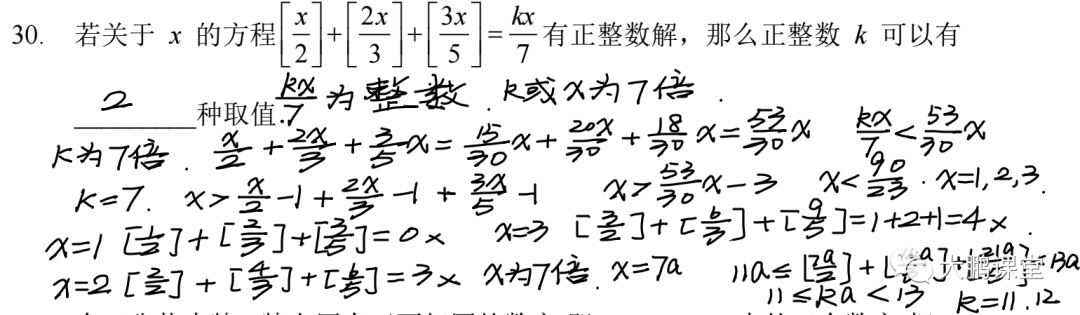 30. 若关于 x 的方程[x/2]+[2x/3]+[3x/5]=kx/7 有正整数解，那么正整数 k 可以有
2 种取值. kx/7 为整数. k或x为7倍.
k为7倍. x/2+2x/3+3/5x=15/30x+20x/30+18/30x=53/30x kx/7<53/30x
k=7. x>x/2-1+2x/3-1+3x/5-1 x>53/30x-3 x<90/23. x=1,2,3.
x=1 [1/2]+[2/3]+[3/5]=0× x=3 [3/2]+[6/3]+[9/5]=1+2+1=4×
x=2[2/2]+[4/3]+[6/5]=3× x为7倍. x=7a 11a≤[7a/2]+[ a]+[21a/5]≤13a
11≤ka<13 k=11.12
大鹏课堂